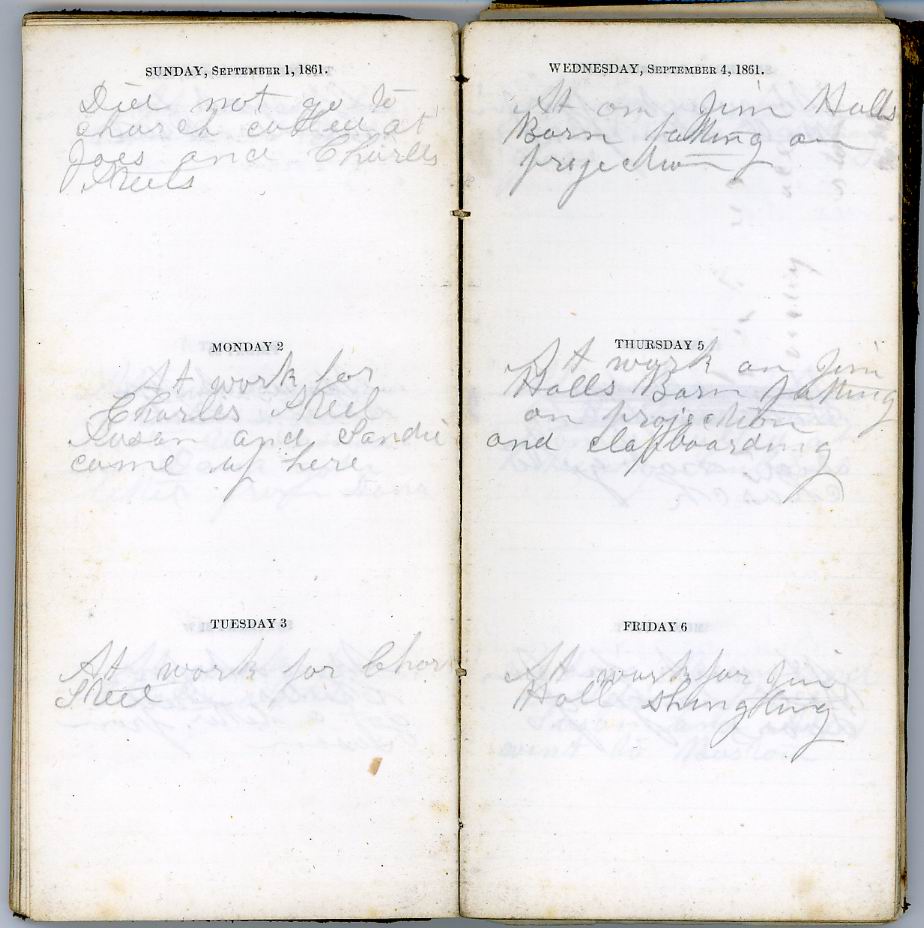 SUNDAY, SEPTEMBER 1, 1861.
Did not go to
church called at
Joes and Charles
Steels
MONDAY 2
At work for
Charles Steel
Susan and Sandie
come up here
TUESDAY 3
At work for Char
Steel
WEDNESDAY, SEPTEMBER 4, 1861.
At on Jim Halls
Barn putting on
projection
THURSDAY 5
At work on Jim
Halls Barn putting
on projection
and clapboarding
FRIDAY 6
At work for Jim
Hall shingling